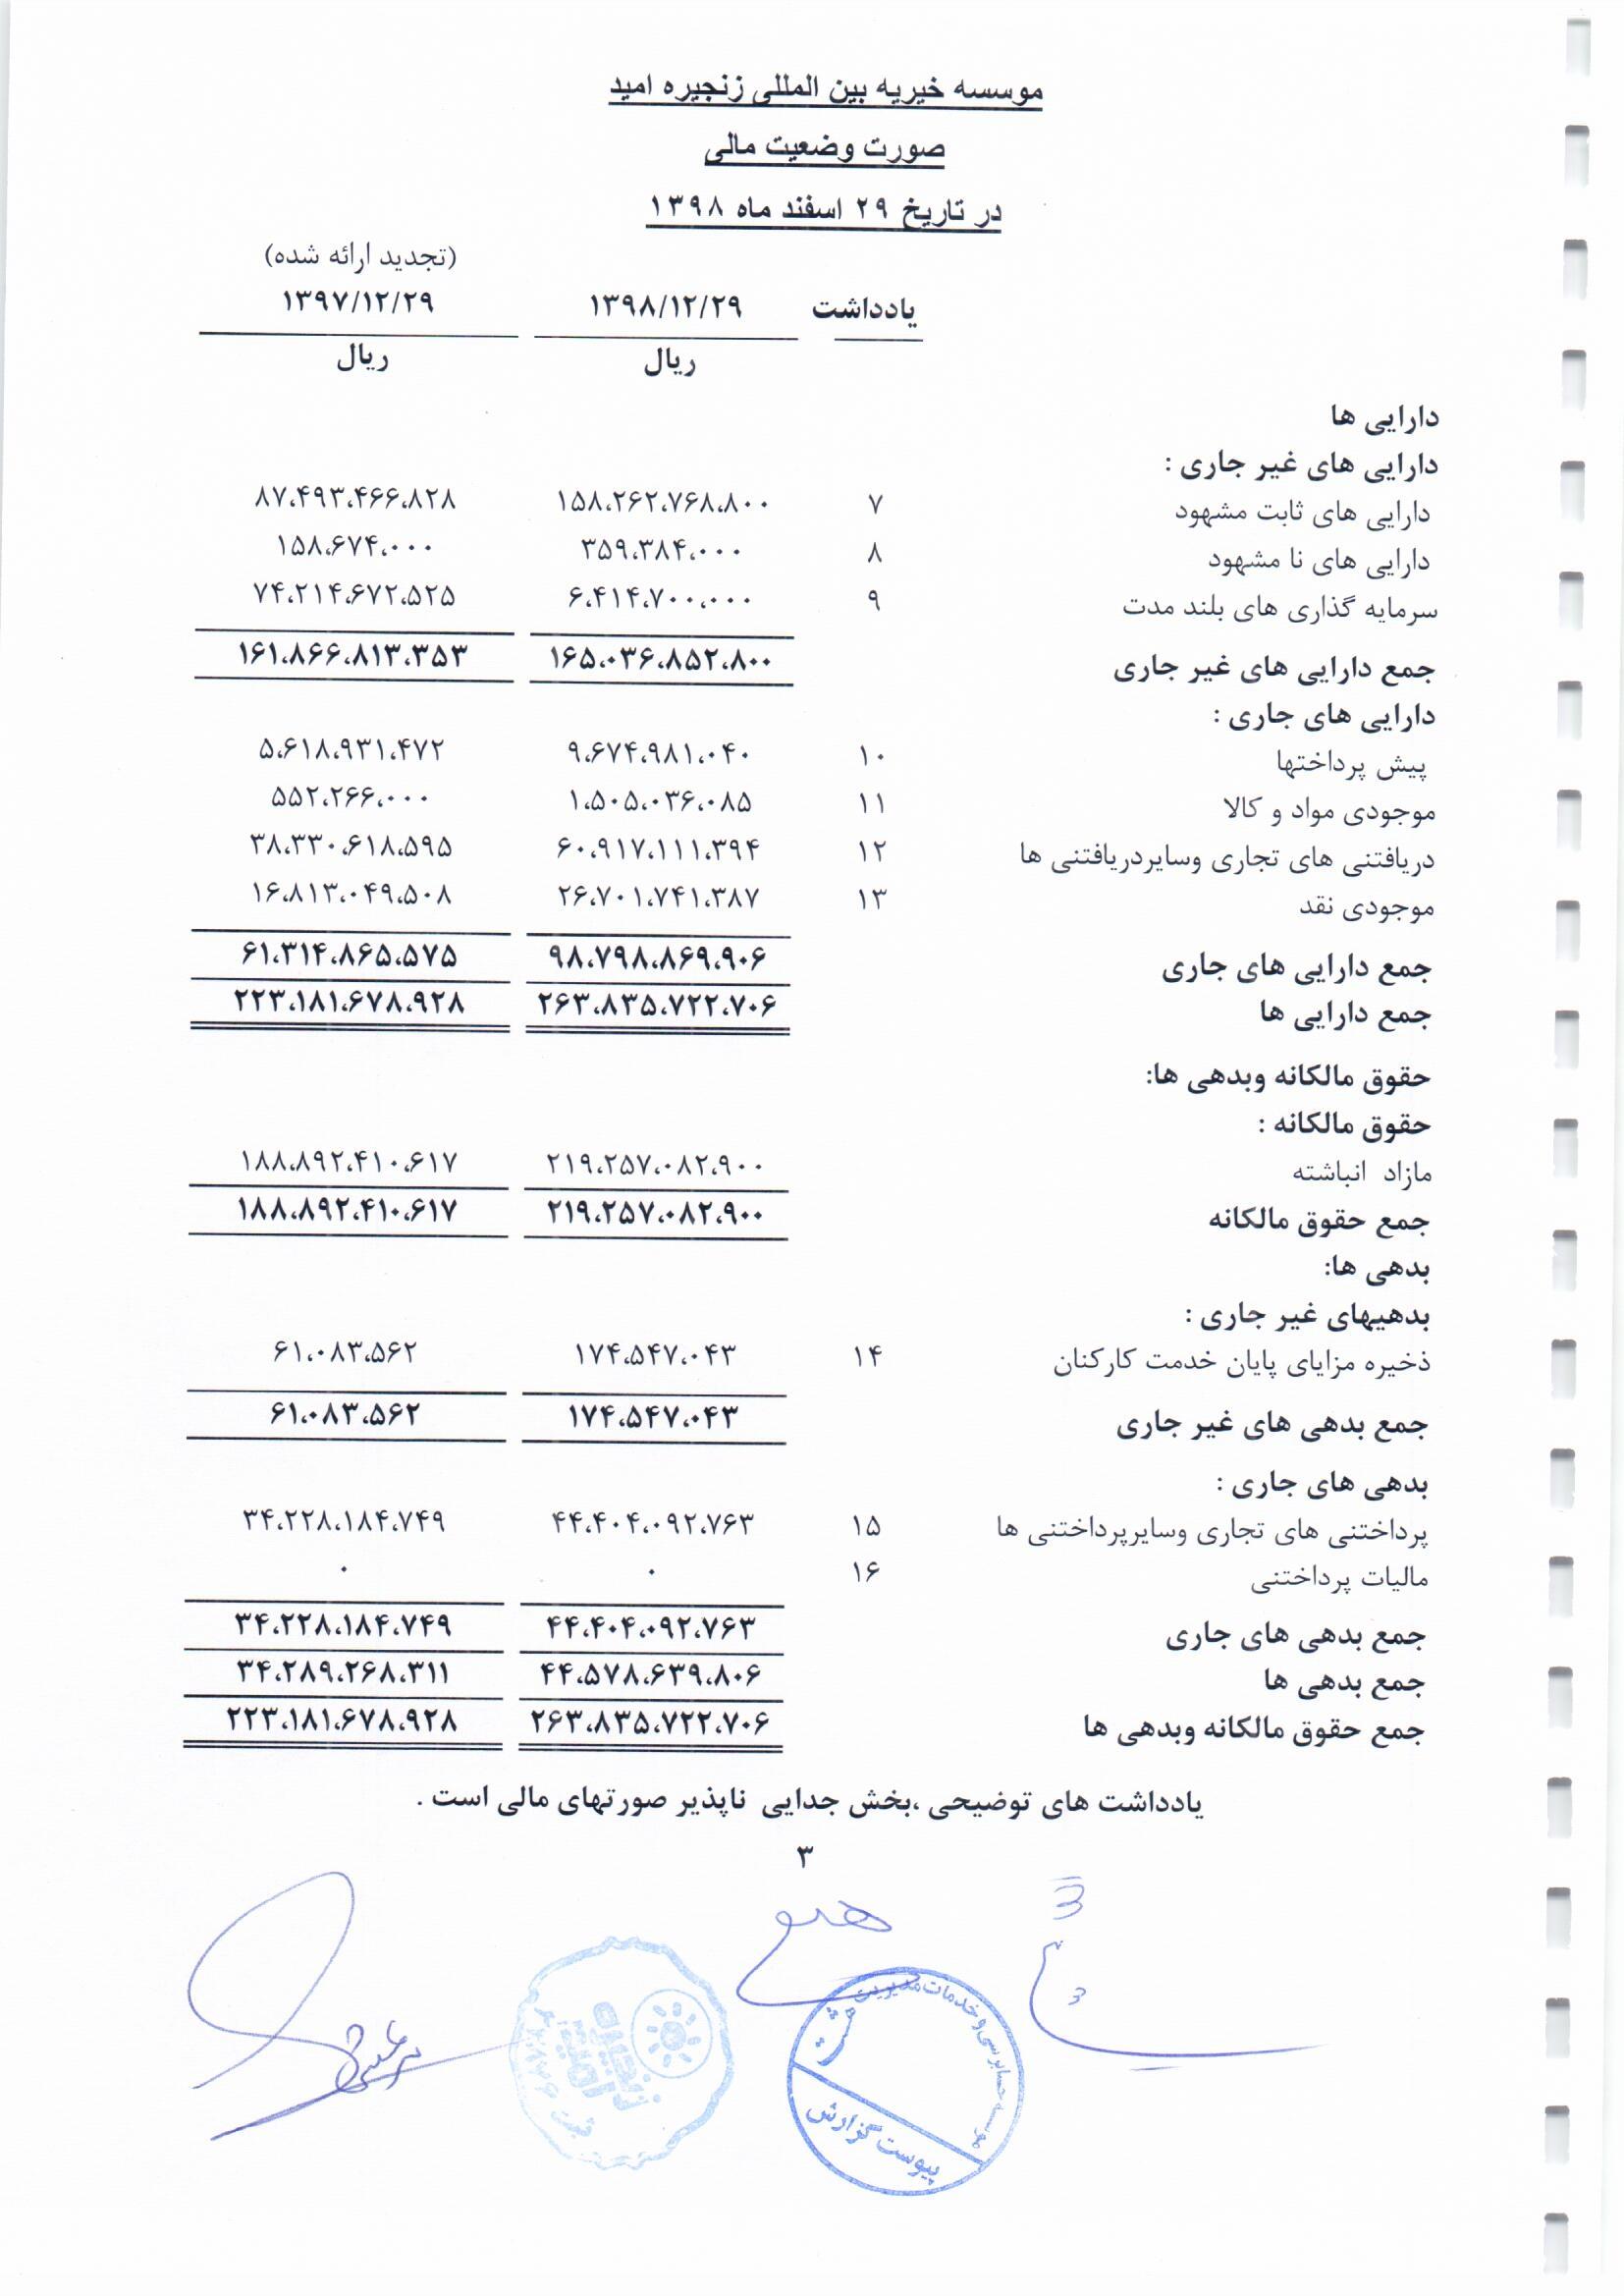 موسسه خیریه بین المللی زنجیره امید
صورت وضعیت مالی
در تاریخ ۲۹ اسفند ماه ۱۳۹۸
(تجدید ارائه شده)
یادداشت ۱۳۹۸/۱۲/۲۹ ۱۳۹۷/۱۲/۲۹
ریال ریال
دارایی ها
دارایی های غیر جاری :
دارایی های ثابت مشهود ۷ ۱۵۸،۲۶۲،۷۶۸،۸۰۰ ۸۷،۴۹۳،۴۶۶،۸۲۸
دارایی های نا مشهود ۸ ۳۵۹،۳۸۴،۰۰۰ ۱۵۸،۶۷۴،۰۰۰
سرمایه گذاری های بلند مدت ۹ ۶،۴۱۴،۷۰۰،۰۰۰ ۷۴،۲۱۴،۶۷۲،۵۲۵
جمع دارایی های غیر جاری ۱۶۵،۰۳۶،۸۵۲،۸۰۰ ۱۶۱،۸۶۶،۸۱۳،۳۵۳
دارایی های جاری :
پیش پرداختها ۱۰ ۹،۶۷۴،۹۸۱،۰۴۰ ۵،۶۱۸،۹۳۱،۴۷۲
موجودی مواد و کالا ۱۱ ۱،۵۰۵،۰۳۶،۰۸۵ ۵۵۲،۲۶۶،۰۰۰
دریافتنی های تجاری وسایردریافتنی ها ۱۲ ۶۰،۹۱۷،۱۱۱،۳۹۴ ۳۸،۳۳۰،۶۱۸،۵۹۵
موجودی نقد ۱۳ ۲۶،۷۰۱،۷۴۱،۳۸۷ ۱۶،۸۱۳،۰۴۹،۵۰۸
جمع دارایی های جاری ۹۸،۷۹۸،۸۶۹،۹۰۶ ۶۱،۳۱۴،۸۶۵،۵۷۵
جمع دارایی ها ۲۶۳،۸۳۵،۷۲۲،۷۰۶ ۲۲۳،۱۸۱،۶۷۸،۹۲۸
حقوق مالکانه وبدهی ها:
حقوق مالکانه :
مازاد انباشته ۲۱۹،۲۵۷،۰۸۲،۹۰۰ ۱۸۸،۸۹۲،۴۱۰،۶۱۷
جمع حقوق مالکانه ۲۱۹،۲۵۷،۰۸۲،۹۰۰ ۱۸۸،۸۹۲،۴۱۰،۶۱۷
بدهی ها:
بدهیهای غیر جاری :
ذخیره مزایای پایان خدمت کارکنان ۱۴ ۱۷۴،۵۴۷،۰۴۳ ۶۱،۰۸۳،۵۶۲
جمع بدهی های غیر جاری ۱۷۴،۵۴۷،۰۴۳ ۶۱،۰۸۳،۵۶۲
بدهی های جاری :
پرداختنی های تجاری وسایرپرداختنی ها ۱۵ ۴۴،۴۰۴،۰۹۲،۷۶۳ ۳۴،۲۲۸،۱۸۴،۷۴۹
مالیات پرداختنی ۱۶ ۰ ۰
جمع بدهی های جاری ۴۴،۴۰۴،۰۹۲،۷۶۳ ۳۴،۲۲۸،۱۸۴،۷۴۹
جمع بدهی ها ۴۴،۵۷۸،۶۳۹،۸۰۶ ۳۴،۲۸۹،۲۶۸،۳۱۱
جمع حقوق مالکانه وبدهی ها ۲۶۳،۸۳۵،۷۲۲،۷۰۶ ۲۲۳،۱۸۱،۶۷۸،۹۲۸
یادداشت های توضیحی ،بخش جدایی ناپذیر صورتهای مالی است .
۳
موسسه حسابرسی و خدمات مدیریتی
پیوست گزارش
زنجیره امید
ثبت